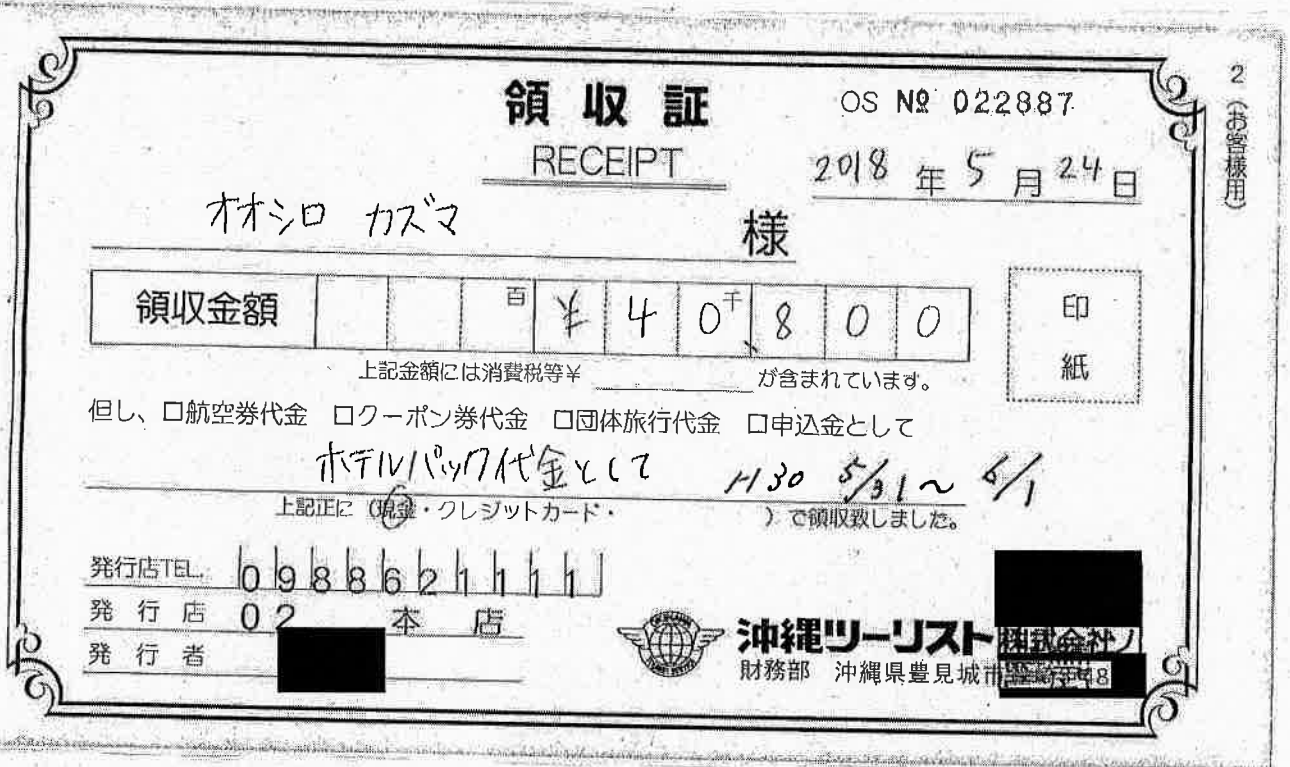 2（お客様用）
領収証
OS № 022887
RECEIPT
2018年5月24日
オオシロ カズマ 様
領収金額 百 ¥ 4 0 千 8 0 0
印紙
上記金額には消費税等¥ が含まれています。
但し、口航空券代金 口クーポン券代金 口団体旅行代金 口申込金として
ホテルパック代金として H30 5/31～6/1
上記正に（現金・クレジットカード・ ）で領収致しました。
発行店TEL. 0988621111
発行店 02 本店
発行者
沖縄ツーリスト株式会社
財務部 沖縄県豊見城市